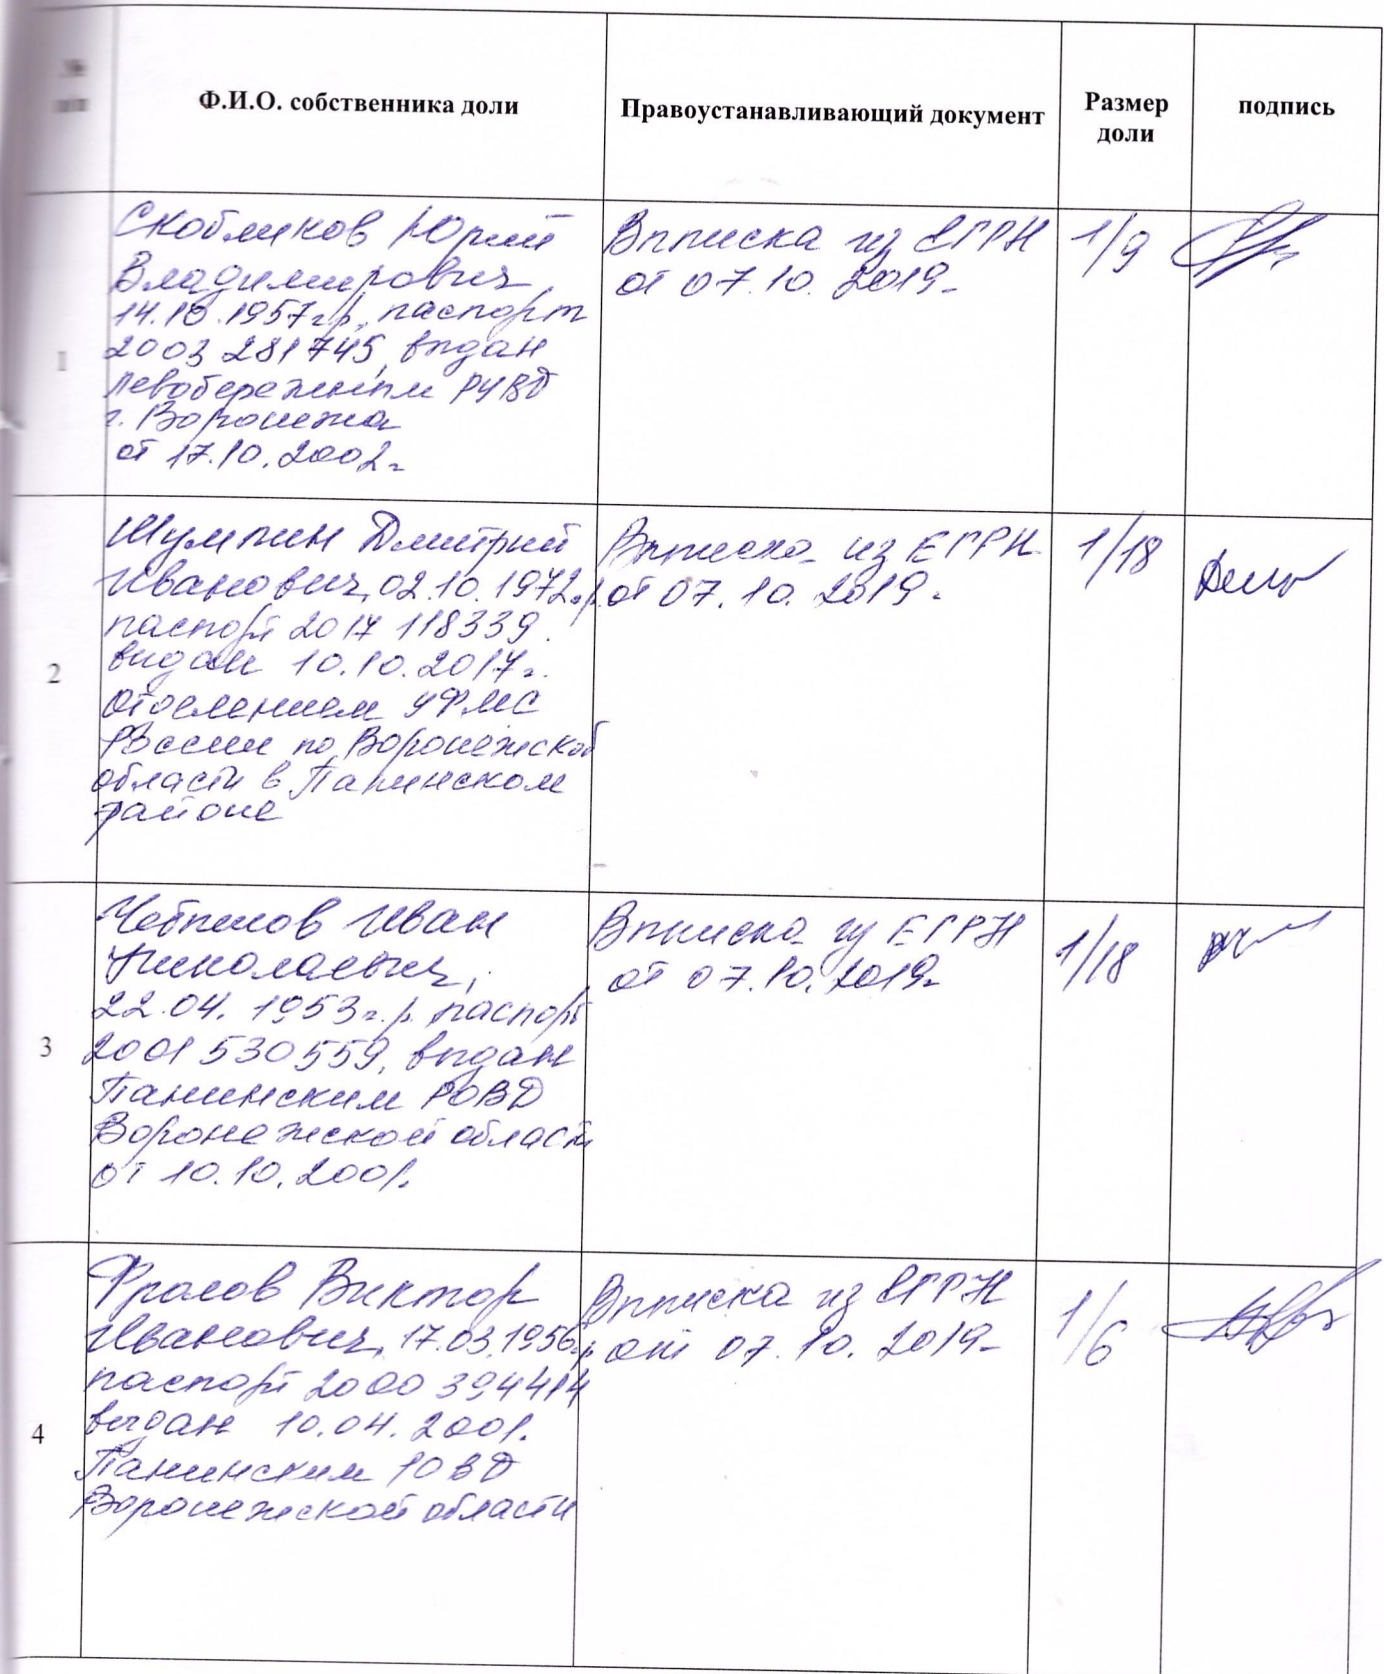 №
п/п
Ф.И.О. собственника доли
Правоустанавливающий документ
Размер
доли
подпись
1
Скобликов Юрий
Владимирович,
14.10.1957г.р., паспорт
2003 281745, выдан
Левобережным РУВД
г. Воронежа
от 17.10.2002г
Выписка из ЕГРН
от 07.10.2019г
1/9
2
Дмитрий
Иванович, 02.10.1972г.р.
паспорт 2017 118339
выдан 10.10.2017г.
отделением УФМС
России по Воронежской
области в Панинском
районе
Выписка из ЕГРН
от 07.10.2019г
1/18
3
Иван
Николаевич,
22.04.1953г.р. паспорт
2001 530559, выдан
Панинским РОВД
Воронежской области
от 10.10.2001.
Выписка из ЕГРН
от 07.10.2019г
1/18
4
Фролов Виктор
Иванович, 17.03.1956г.р.
паспорт 2000 394414
выдан 10.04.2001.
Панинским РОВД
Воронежской области
Выписка из ЕГРН
от 07.10.2019г
1/6